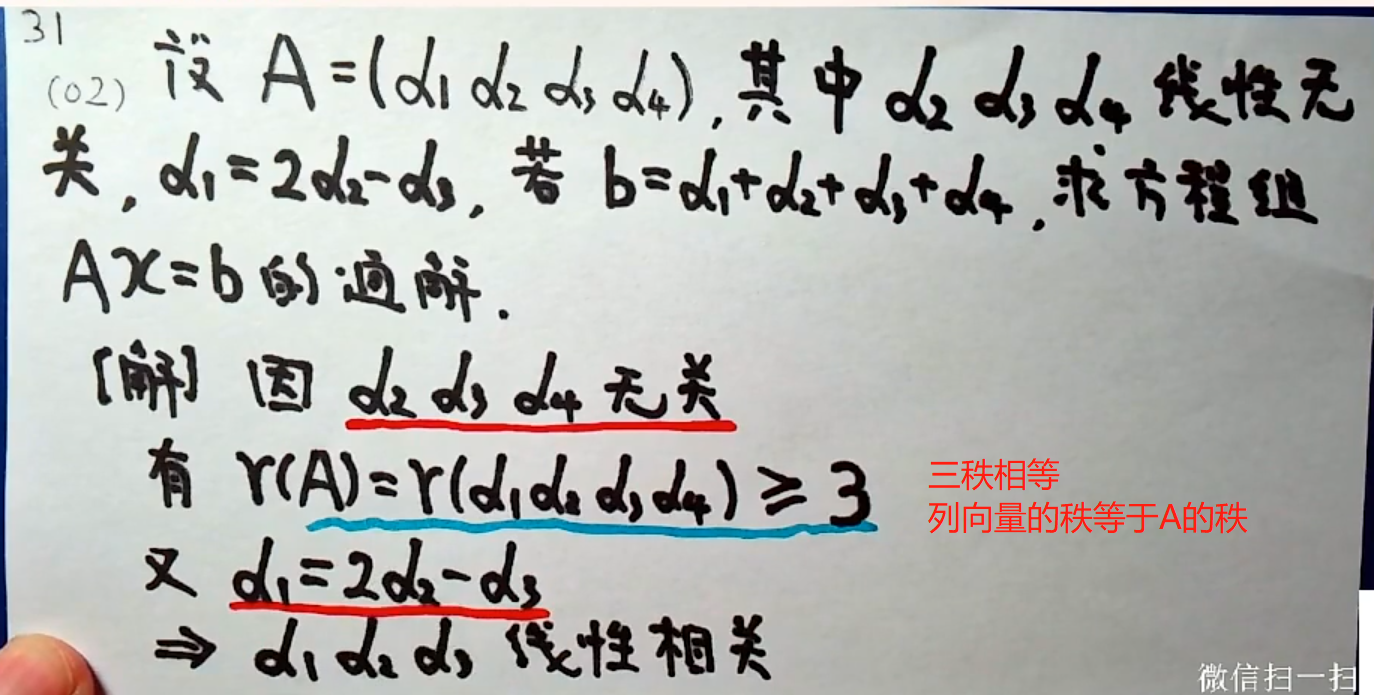 31
(02) 设 A=(α₁ α₂ α₃ α₄),其中 α₂ α₃ α₄ 线性无
关,α₁=2α₂-α₃,若 b=α₁+α₂+α₃+α₄,求方程组
Ax=b的通解.
[解] 因 α₂ α₃ α₄ 无关
有 r(A)=r(α₁α₂α₃α₄)≥3
三秩相等
列向量的秩等于A的秩
又 α₁=2α₂-α₃
⇒ α₁ α₂ α₃ 线性相关
微信扫一扫